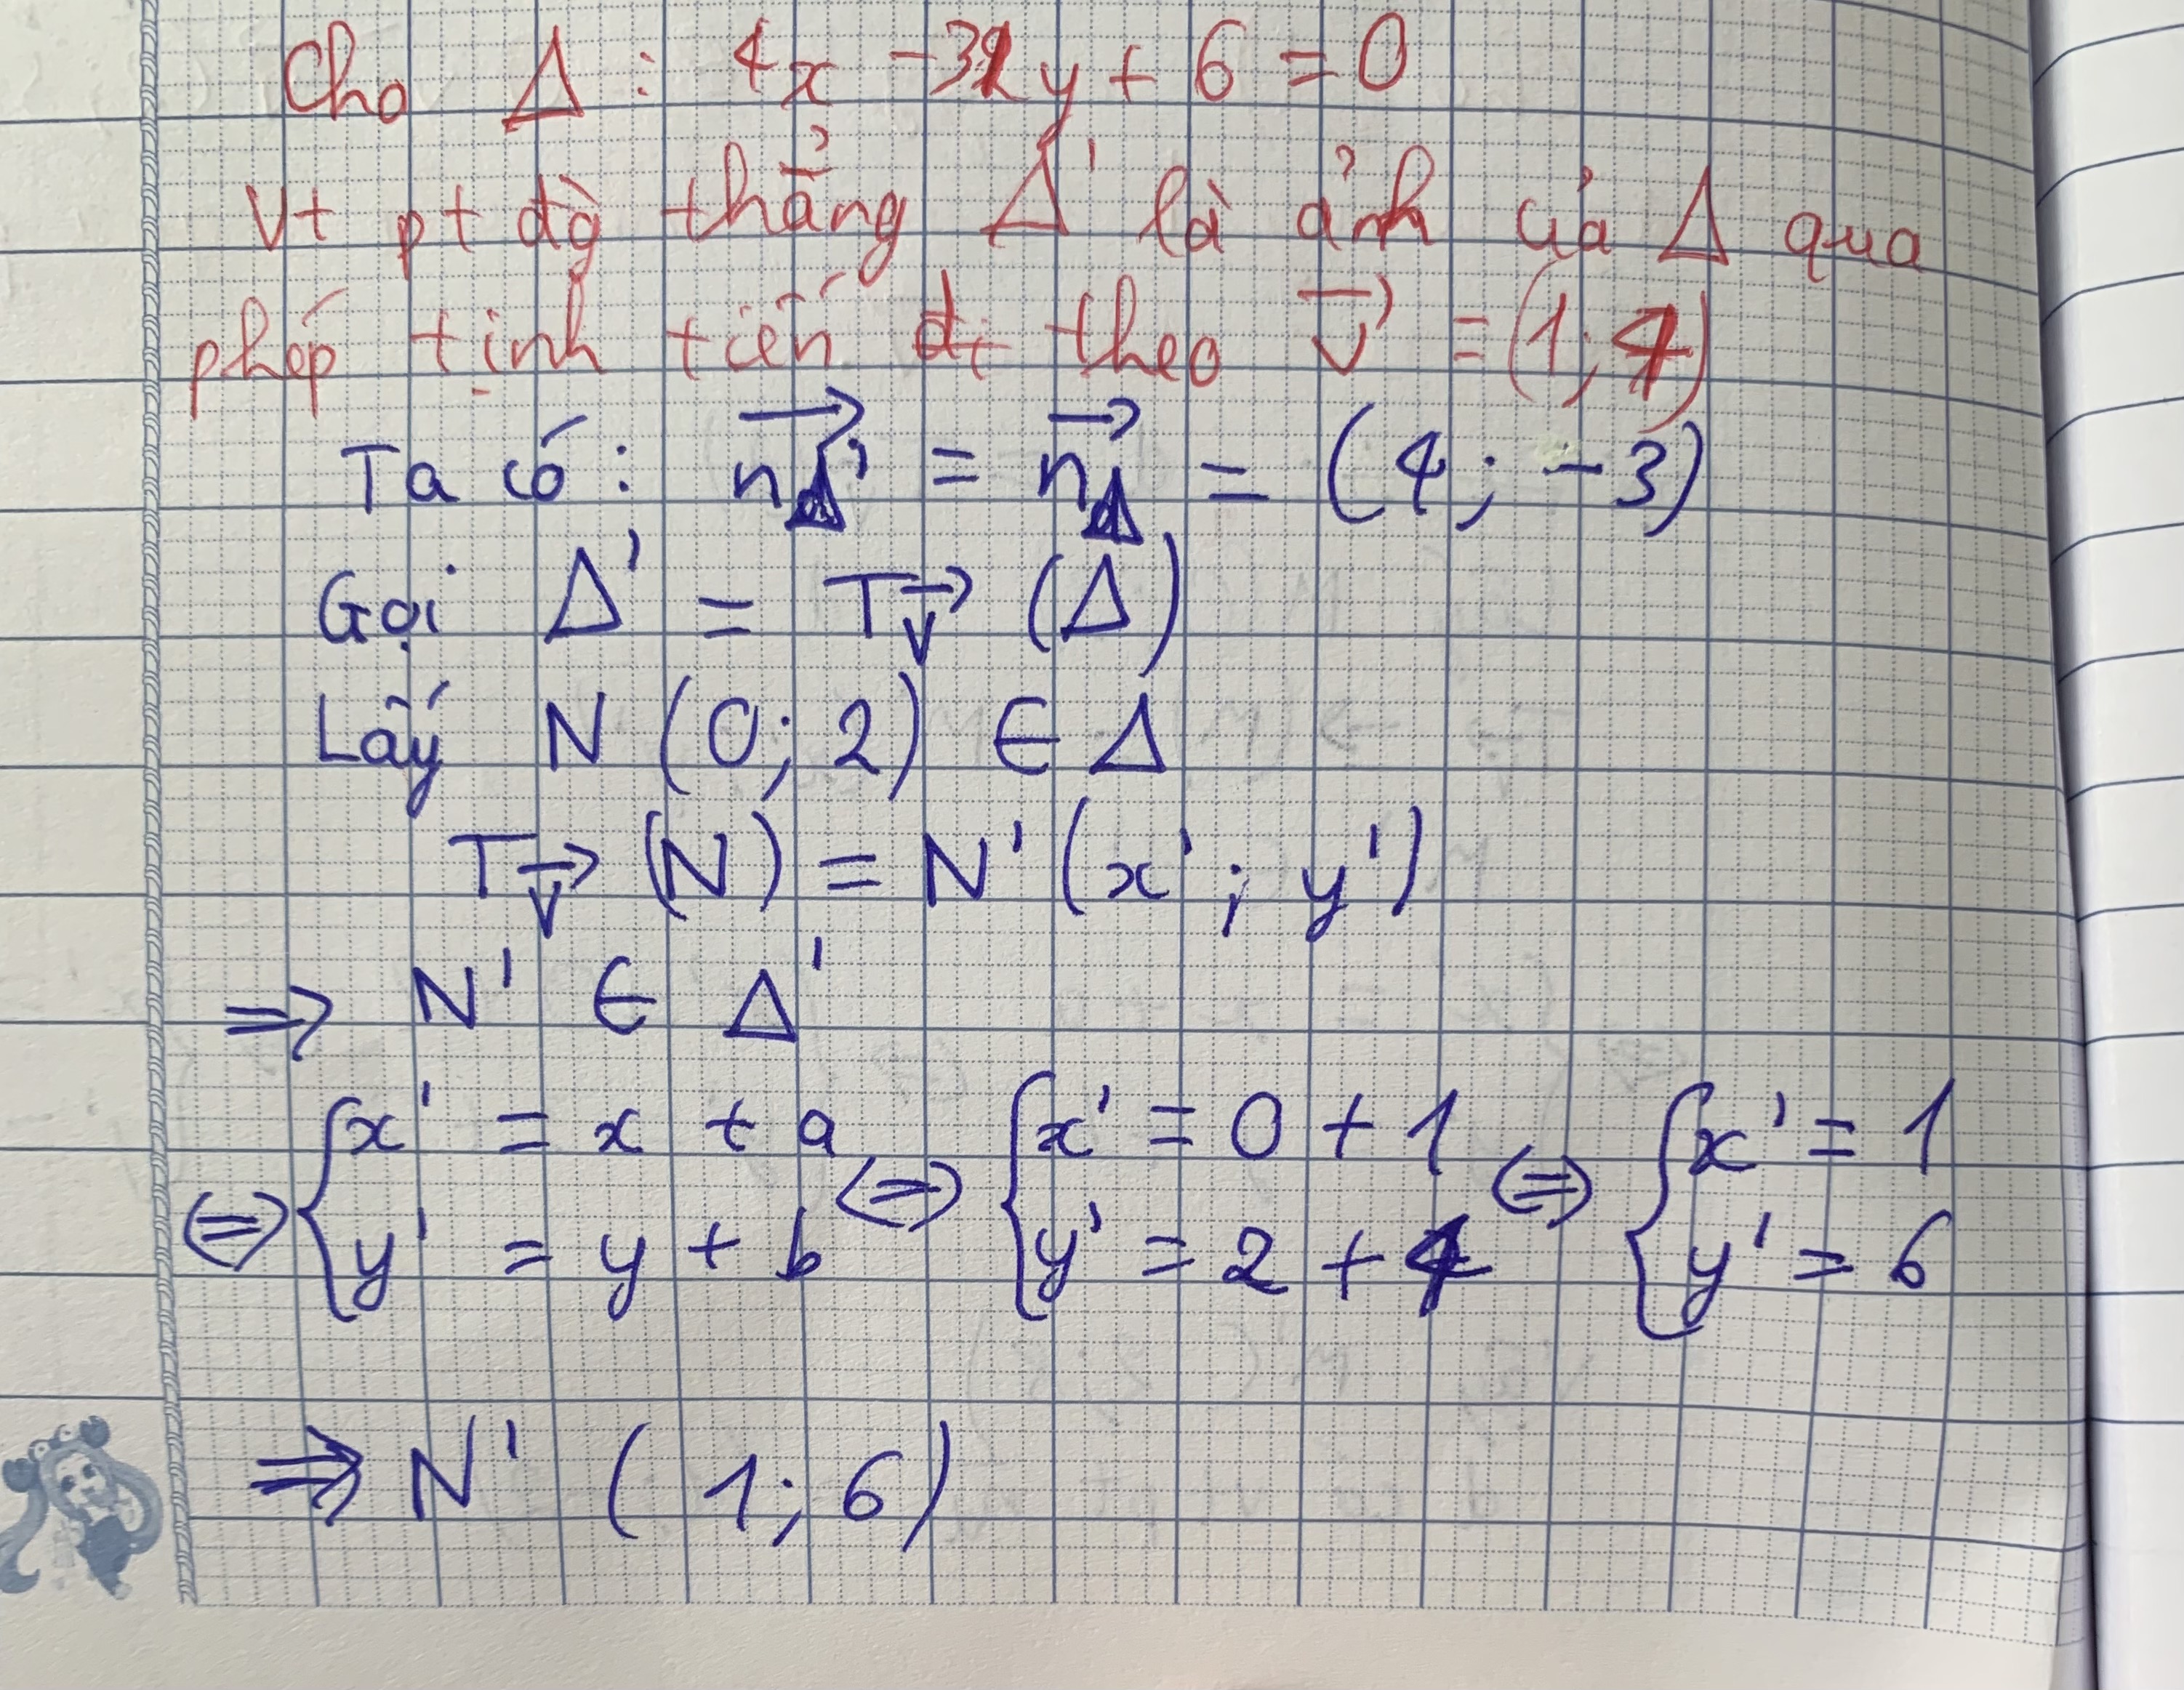 Cho Δ : 4x - 3y + 6 = 0
Vt pt đg thẳng Δ' là ảnh của Δ qua
phép tịnh tiến theo v⃗ = (1; 4)
Ta có : n⃗Δ' = n⃗Δ = (4; -3)
Gọi Δ' = Tv⃗ (Δ)
Lấy N (0; 2) ∈ Δ
Tv⃗ (N) = N' (x' ; y')
⇒ N' ∈ Δ'
⇔ { x' = x + a ⇔ { x' = 0 + 1 ⇔ { x' = 1
y' = y + b y' = 2 + 4 y' = 6
⇒ N' (1; 6)